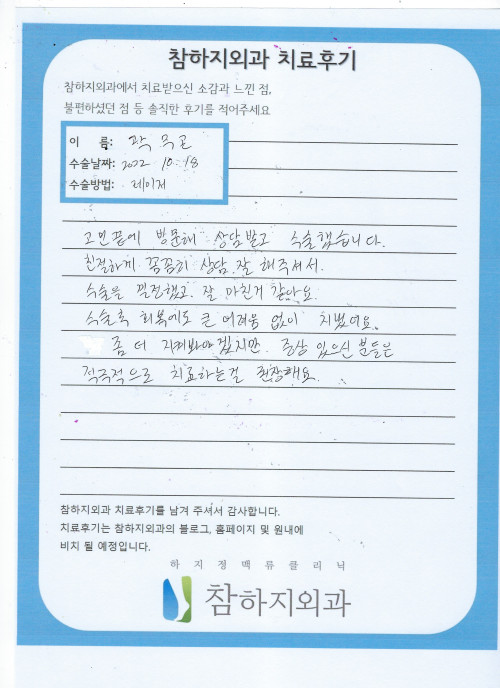 참하지외과 치료후기
참하지외과에서 치료받으신 소감과 느낀 점,
불편하셨던 점 등 솔직한 후기를 적어주세요
이 름: 곽
수술날짜: 2022 10. 18
수술방법: 레이저
고민끝에 방문해 상담받고 수술했습니다.
친절하게 꼼꼼히 상담 잘 해주셔서.
수술을 결정했고 잘 마친거 같아요.
수술후 회복에도 큰 어려움 없이 지냈어요.
좀 더 지켜봐야 겠지만. 증상 있으신 분들은
적극적으로 치료하는걸 권장해요.
참하지외과 치료후기를 남겨 주셔서 감사합니다.
치료후기는 참하지외과의 블로그, 홈페이지 및 원내에
비치 될 예정입니다.
하지정맥류클리닉
참하지외과